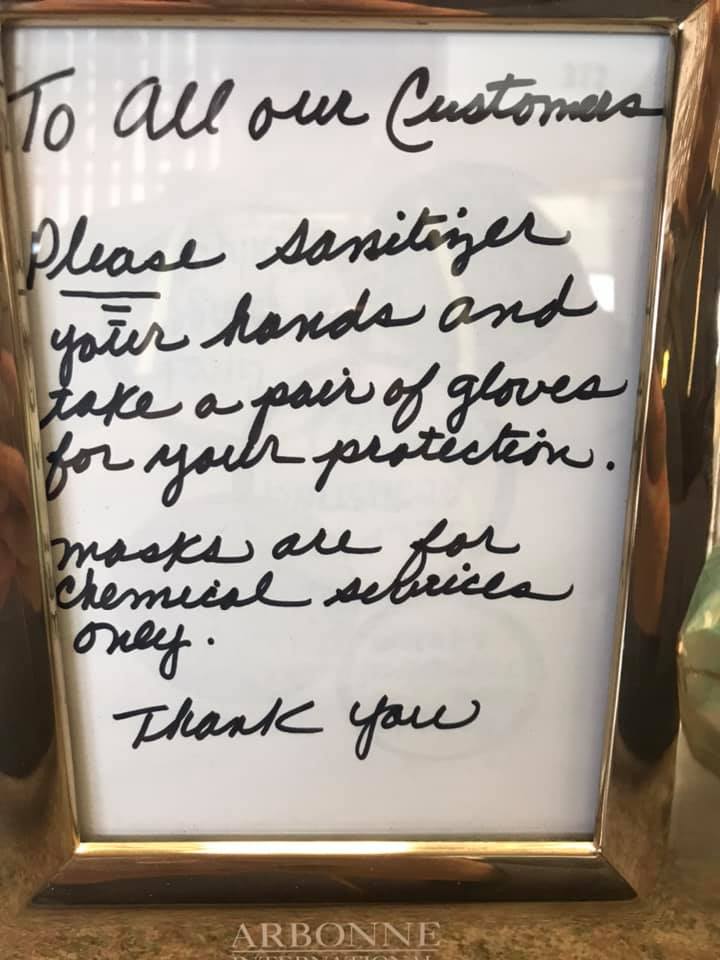 To All our Customers
Please sanitizer
your hands and
take a pair of gloves
for your protection.
masks are for
chemical services
only.
Thank you
ARBONNE
INTERNATIONAL